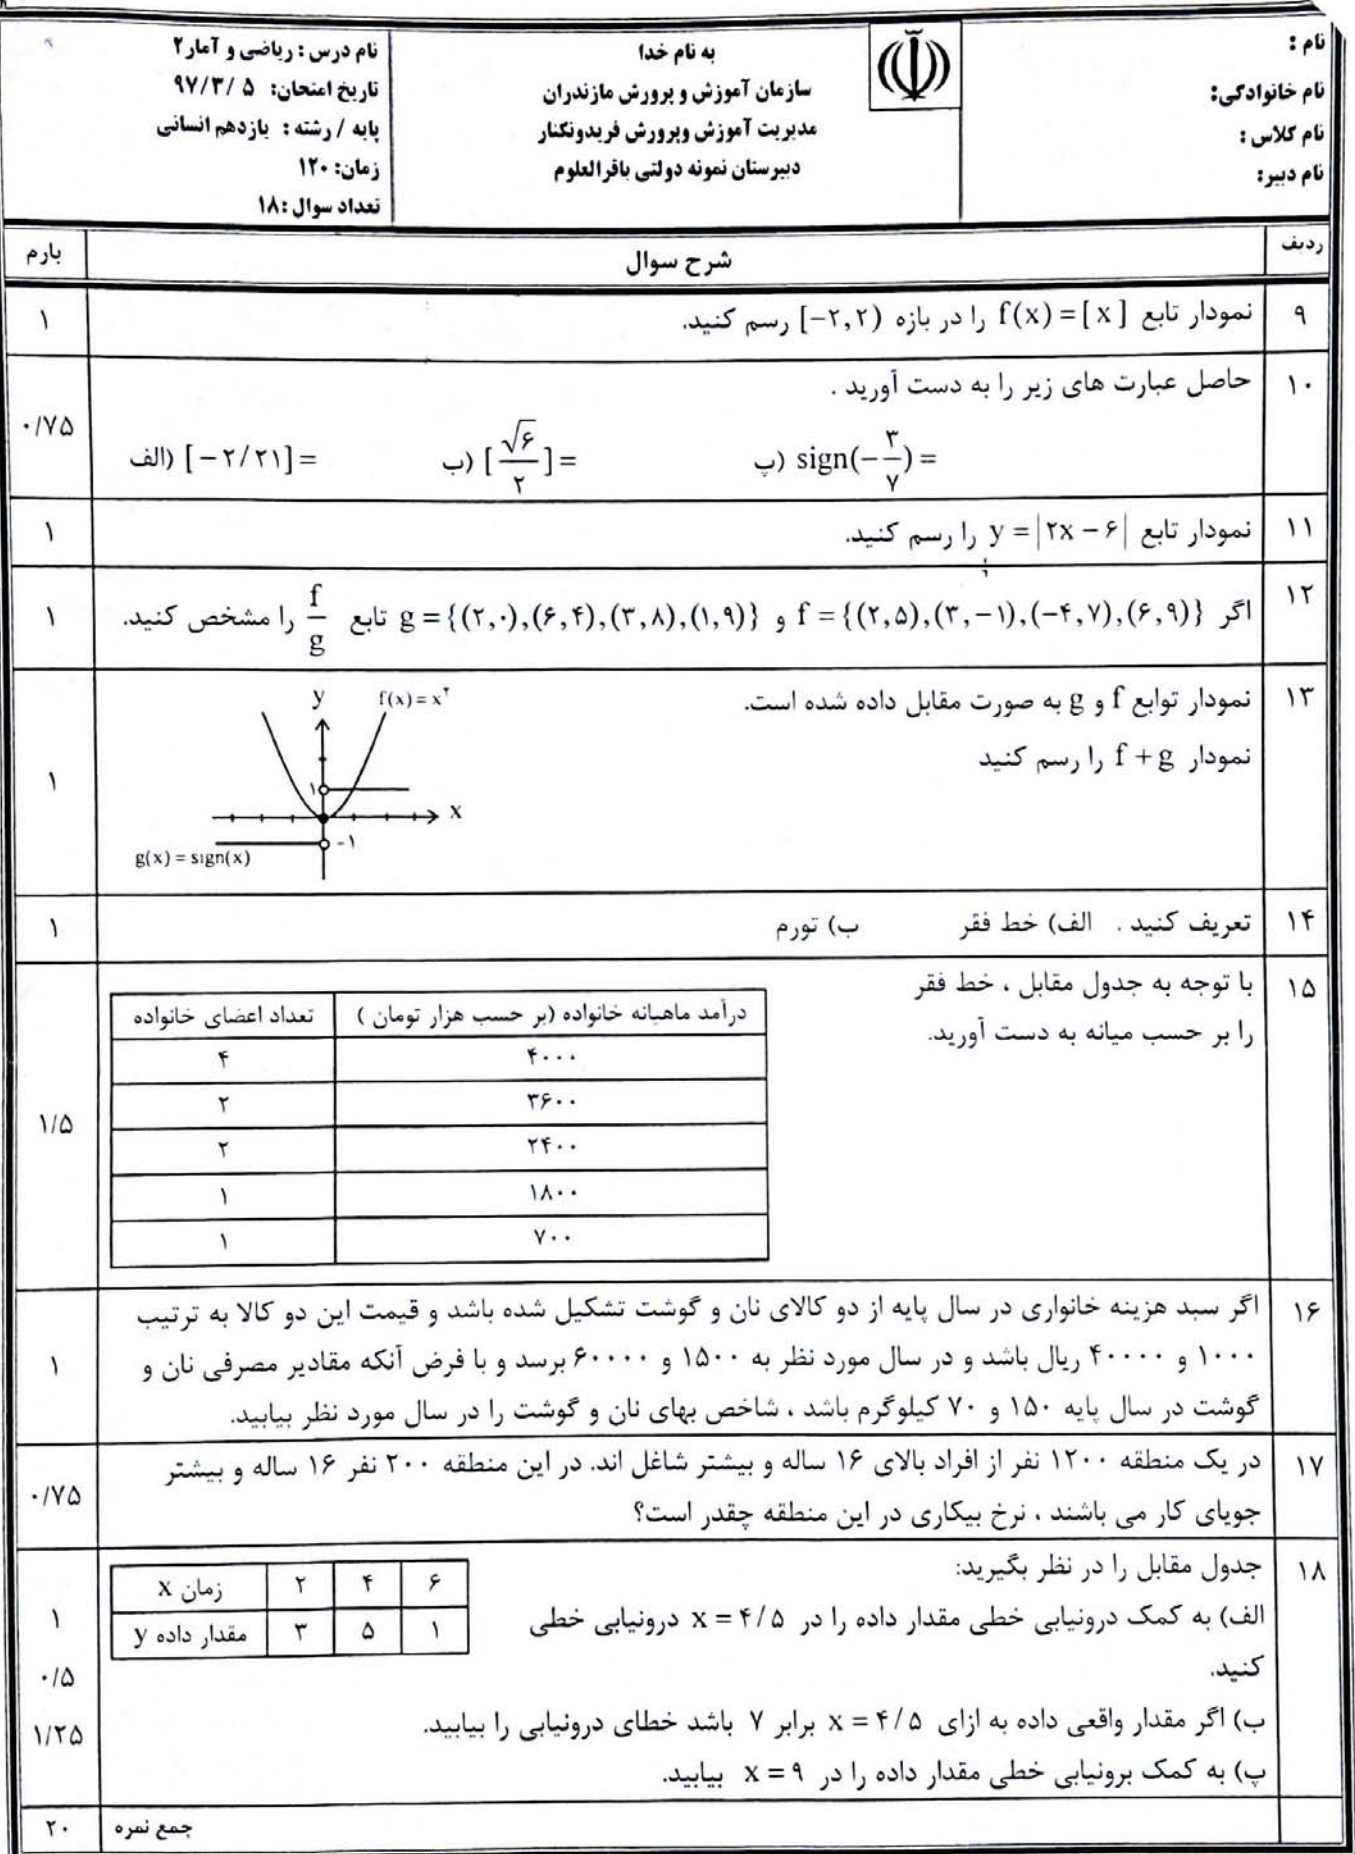 نام :
نام خانوادگی:
نام کلاس :
نام دبیر:
به نام خدا
سازمان آموزش و پرورش مازندران
مدیریت آموزش وپرورش فریدونکنار
دبیرستان نمونه دولتی باقرالعلوم
نام درس : ریاضی و آمار۲
تاریخ امتحان: ۹۷/۳/ ۵
پایه / رشته : یازدهم انسانی
زمان: ۱۲۰
تعداد سوال :۱۸
ردیف شرح سوال بارم
۹ نمودار تابع f(x) = [x] را در بازه [-۲,۲) رسم کنید. ۱
۱۰ حاصل عبارت های زیر را به دست آورید . ۰/۷۵
الف) [-۲/۲۱]= ب) [√۶/۲]= پ) sign(-۳/۷)=
۱۱ نمودار تابع y = |۲x - ۶| را رسم کنید. ۱
۱۲ اگر f = {(۲,۵),(۳,-۱),(-۴,۷),(۶,۹)} و g = {(۲,۰),(۶,۴),(۳,۸),(۱,۹)} تابع f/g را مشخص کنید. ۱
۱۳ نمودار توابع f و g به صورت مقابل داده شده است.
نمودار f + g را رسم کنید ۱
y f(x) = x²
۱
x
-۱
g(x) = sign(x)
۱۴ تعریف کنید . الف) خط فقر ب) تورم ۱
۱۵ با توجه به جدول مقابل ، خط فقر
را بر حسب میانه به دست آورید. ۱/۵
درآمد ماهیانه خانواده (بر حسب هزار تومان ) تعداد اعضای خانواده
۴۰۰۰ ۴
۳۶۰۰ ۲
۲۴۰۰ ۲
۱۸۰۰ ۱
۷۰۰ ۱
۱۶ اگر سبد هزینه خانواری در سال پایه از دو کالای نان و گوشت تشکیل شده باشد و قیمت این دو کالا به ترتیب
۱۰۰۰ و ۴۰۰۰۰ ریال باشد و در سال مورد نظر به ۱۵۰۰ و ۶۰۰۰۰ برسد و با فرض آنکه مقادیر مصرفی نان و ۱
گوشت در سال پایه ۱۵۰ و ۷۰ کیلوگرم باشد ، شاخص بهای نان و گوشت را در سال مورد نظر بیابید.
۱۷ در یک منطقه ۱۲۰۰ نفر از افراد بالای ۱۶ ساله و بیشتر شاغل اند. در این منطقه ۲۰۰ نفر ۱۶ ساله و بیشتر ۰/۷۵
جویای کار می باشند ، نرخ بیکاری در این منطقه چقدر است؟
۱۸ جدول مقابل را در نظر بگیرید:
زمان x ۲ ۴ ۶
مقدار داده y ۳ ۵ ۱
الف) به کمک درونیابی خطی مقدار داده را در x = ۴/۵ درونیابی خطی ۱
کنید. ۰/۵
ب) اگر مقدار واقعی داده به ازای x = ۴/۵ برابر ۷ باشد خطای درونیابی را بیابید. ۱/۲۵
پ) به کمک برونیابی خطی مقدار داده را در x = ۹ بیابید.
جمع نمره ۲۰